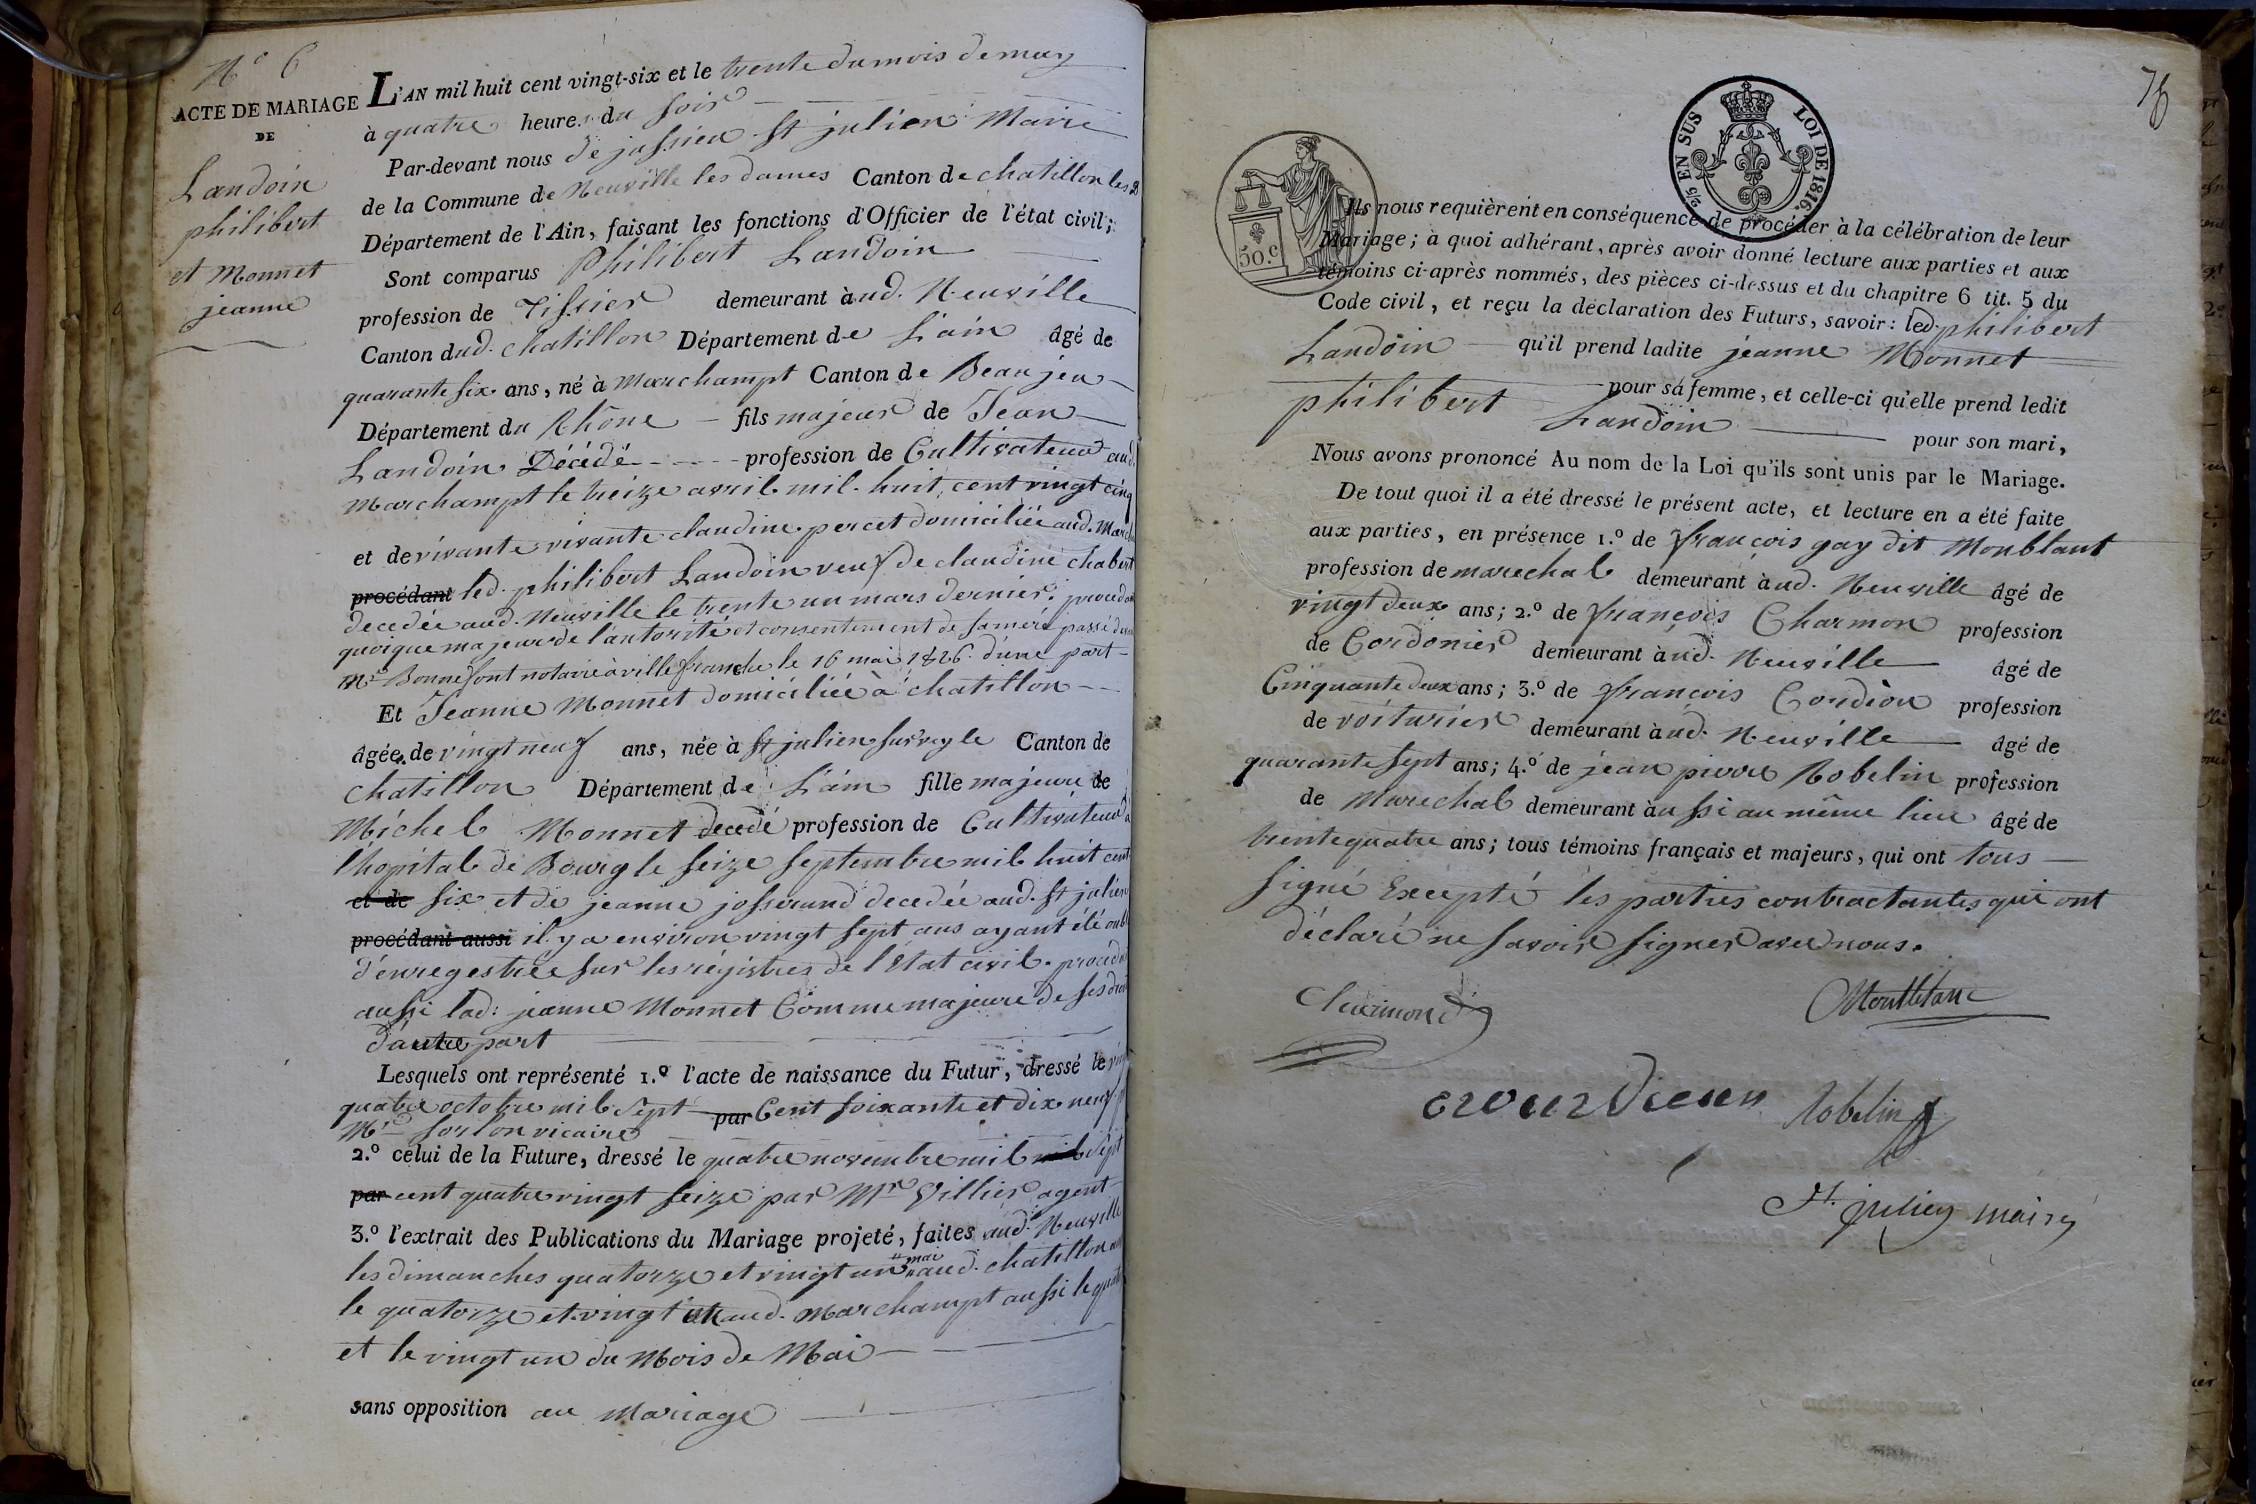 N° 6
ACTE DE MARIAGE
DE
Landoin
philibert
et Monnet
jeanne
L'AN mil huit cent vingt-six et le trente du mois de may
à quatre heures du soir
Par-devant nous de jussieu St julien Maire
de la Commune de Neuville les dames Canton de chatillon les D
Département de l'Ain, faisant les fonctions d'Officier de l'état civil;
Sont comparus Philibert Landoin
profession de Tissier demeurant à ud. Neuville
Canton dud. chatillon Département de L'ain âgé de
quarante six ans, né à Marchampt Canton de Beaujeu
Département du Rhône fils majeur de Jean
Landoin Décédé profession de Cultivateur aud.
Marchampt le treize avril mil huit cent vingt cinq
et de vivante vivante claudine percet domiciliée aud. March
procédant led. philibert Landoin veuf de claudine chabert
decedée aud. Neuville le trente un mars dernier. procedant
quoique majeur de l'autorité et consentement de sa mére passé devant
Me Bonnefont notaire à villefranche le 16 mai 1826. d'une part
Et Jeanne Monnet domiciliée à chatillon
âgée de vingt neuf ans, née à St julien sur veyle Canton de
chatillon Département de L'ain fille majeure de
Michel Monnet decedé profession de Cultivateur à
l'hopital de Bourg le seize septembre mil huit cent
et de six et de jeanne josserand decedée aud. St julien
procédant aussi il y a environ vingt sept ans ayant été oubl
d'enregestrée sur les régistres de l'Etat civil. procedant
aussi lad: jeanne Monnet Comme majeure de ses droit
d'autre part
Lesquels ont représenté 1.° l'acte de naissance du Futur, dressé le vingt
quatre octobre mil sept par Cent soixante et dix neuf p
Mr Sorlon vicaire
2.° celui de la Future, dressé le quatre novembre mil mil sept
par cent quatre vingt seize par Mr Villier agent
3.° l'extrait des Publications du Mariage projeté, faites aud. Neuville
mai
les dimanches quatorze et vingt un aud. chatillon
le quatorze et vingt un aud. Marchampt aussi le quat
et le vingt un du Mois de Mai
sans opposition au Mariage
76
2/5 EN SUS LOI DE 1816.
50.c
Ils nous requièrent en conséquence de procéder à la célébration de leur
Mariage; à quoi adhérant, après avoir donné lecture aux parties et aux
témoins ci-après nommés, des pièces ci-dessus et du chapitre 6 tit. 5 du
Code civil, et reçu la déclaration des Futurs, savoir: led. philibert
Landoin qu'il prend ladite jeanne Monnet
pour sa femme, et celle-ci qu'elle prend ledit
philibert Landoin pour son mari,
Nous avons prononcé Au nom de la Loi qu'ils sont unis par le Mariage.
De tout quoi il a été dressé le présent acte, et lecture en a été faite
aux parties, en présence 1.° de françois gay dit Monblant
profession de marechal demeurant à ud. Neuville âgé de
vingt deux ans; 2.° de françois Charmon profession
de Cordonier demeurant à ud. Neuville âgé de
Cinquante deux ans; 3.° de françois Condion profession
de voiturier demeurant à ud. Neuville âgé de
quarante sept ans; 4.° de jean pierre Robelin profession
de Marechal demeurant à ussi au même lieu âgé de
trente quatre ans; tous témoins français et majeurs, qui ont tous
signé Excepté les parties contractantes qui ont
déclaré ne savoir signer avec nous.
Montblanc
Robelin
St. julien maire